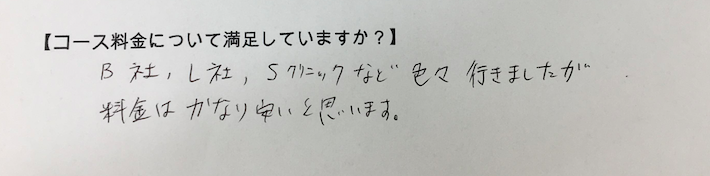 【コース料金について満足していますか？】
B社,L社,Sクリニックなど色々行きましたが
料金はかなり安いと思います。